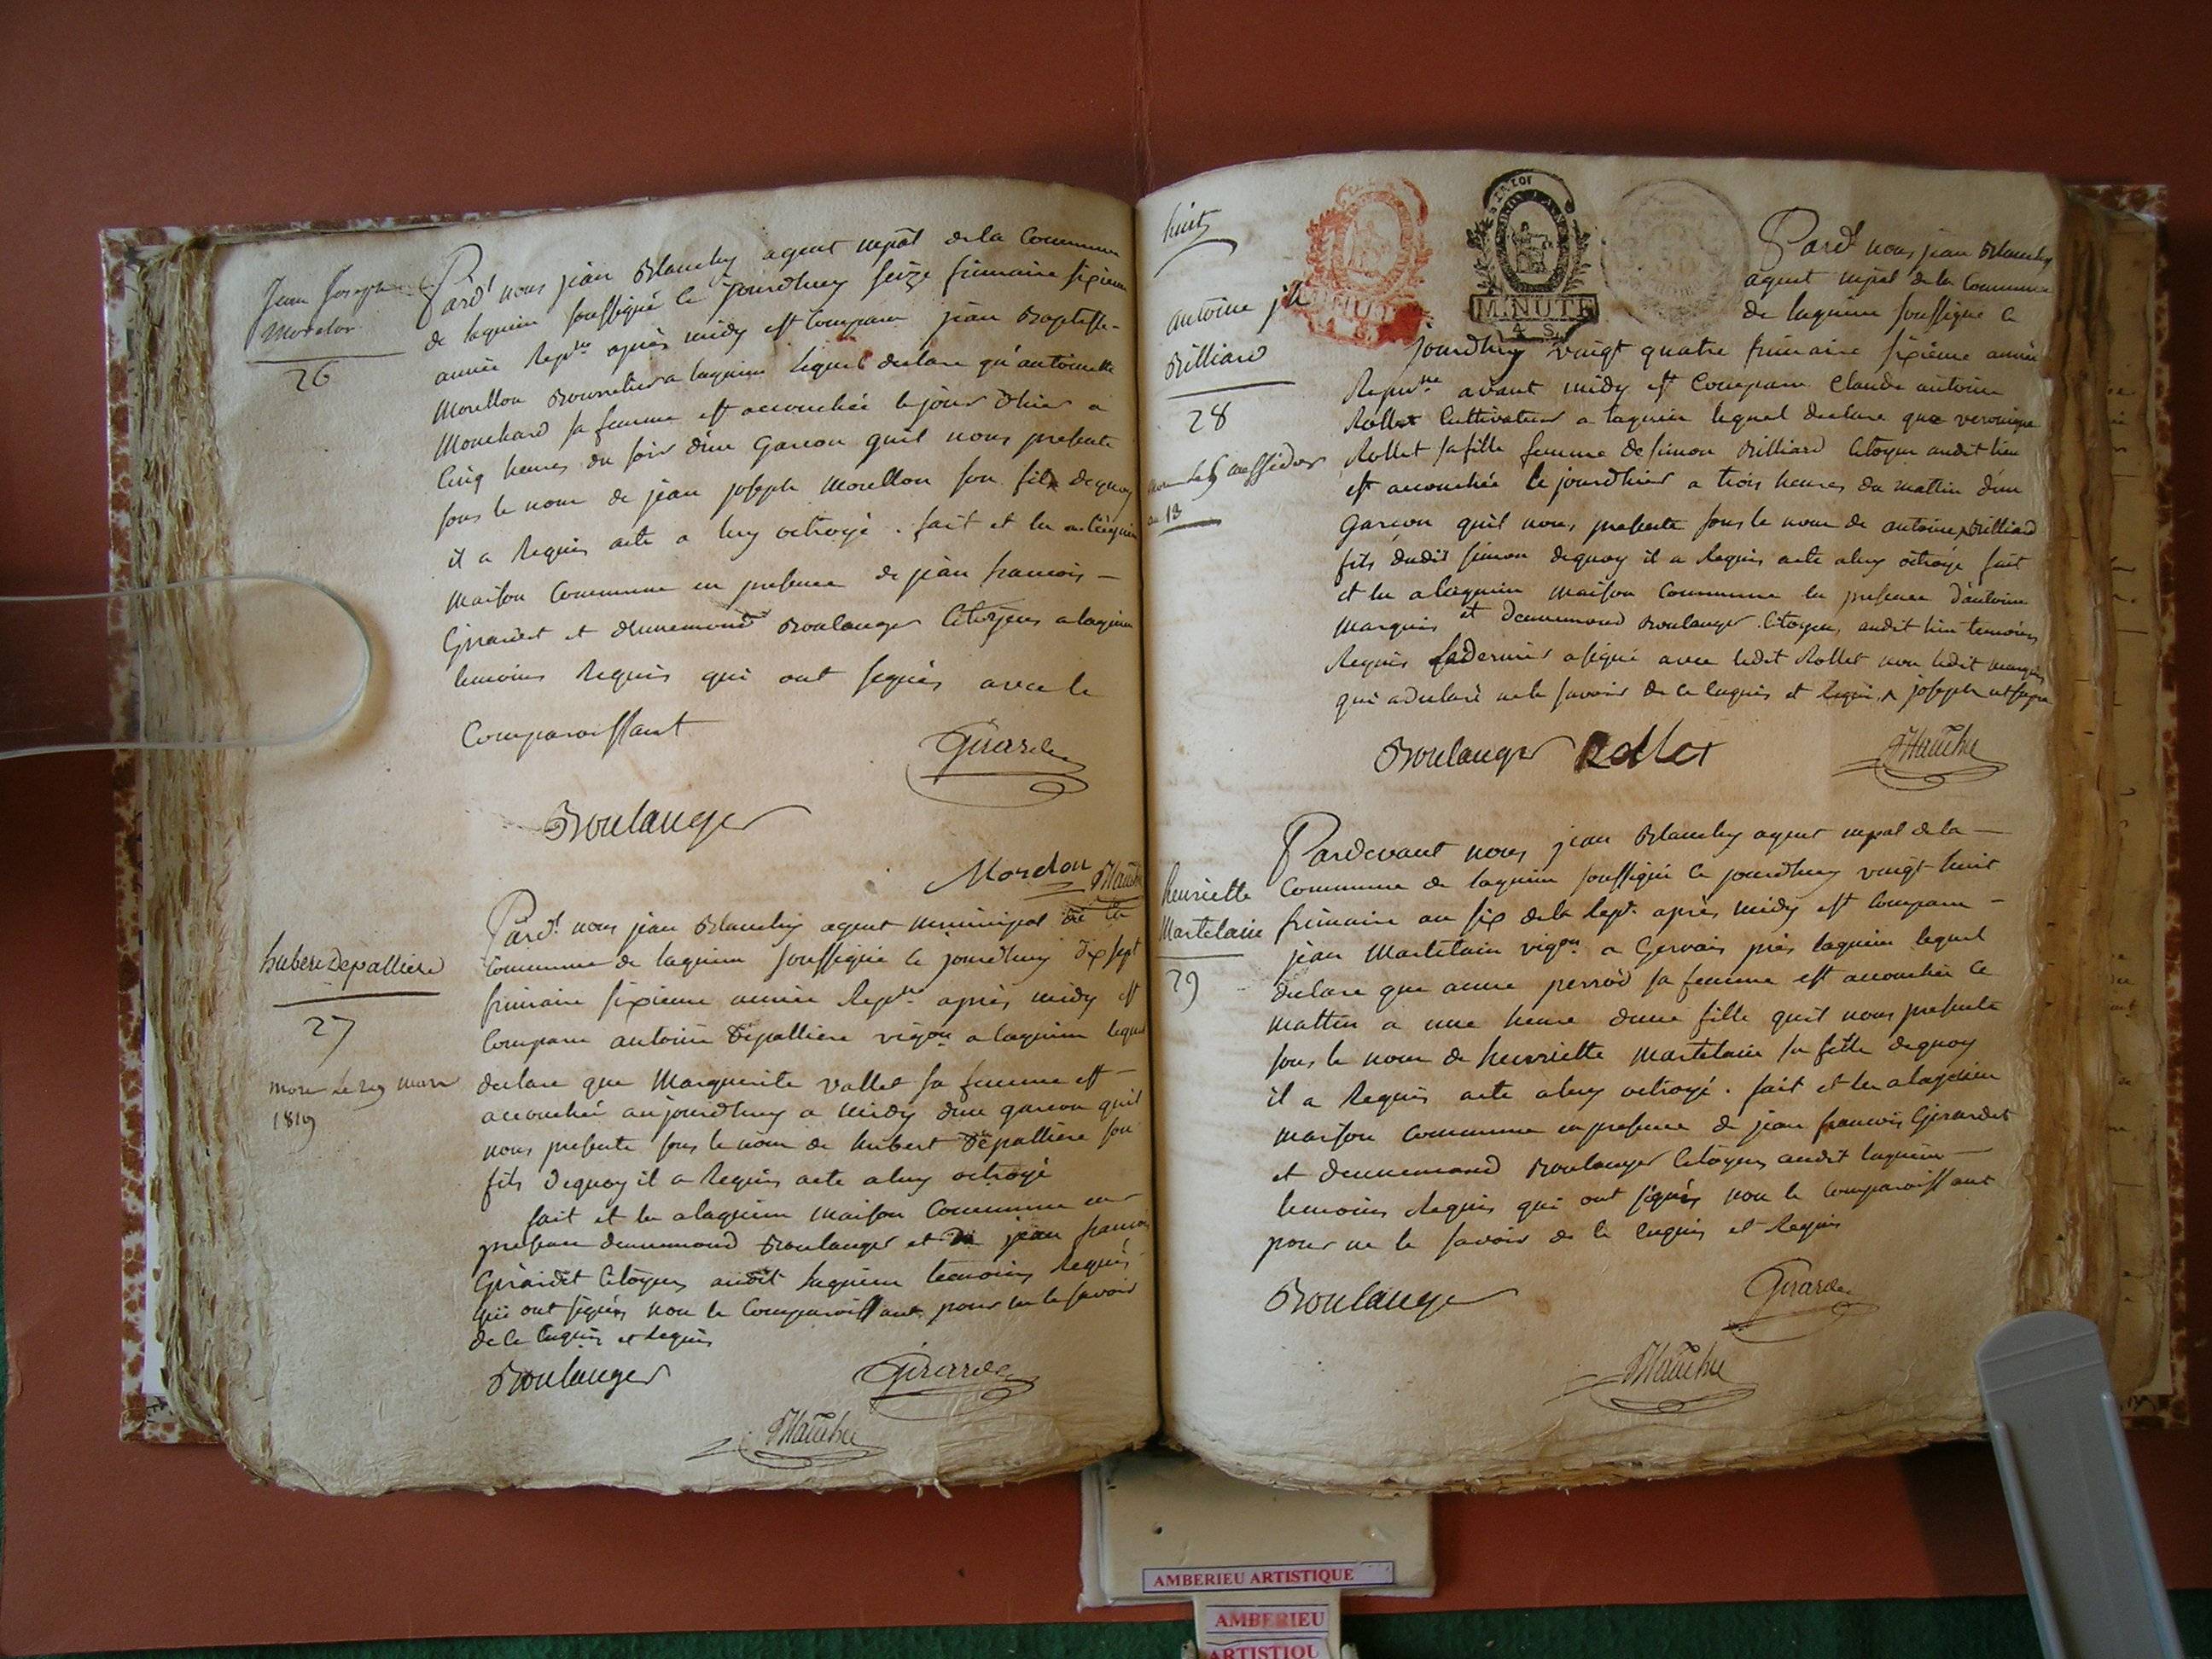 Jean Joseph
Morelon
26
Pard.t nous jean Blanchy agent mpãl dela Commune
de lagnieu soussigné ce jourdhuy seize frimaire sixieme
année Rep.ne après midy est Comparu jean Baptiste-
Morellon Bourrelier a lagnieu lequel declare qu'antoinette
Mouchard sa femme est accouchée le jour dhier a
Cinq heures du soir d'un Garcon quil nous presente
sous le nom de jean joseph Morellon son fils dequoy
il a Requis acte a luy octroyé . fait et lu a lagnieu
Maison Commune en presence de jean francois -
Girardet et dennemond Boulanger Citoyens a lagnieu
temoins Requis qui ont signés avec le
Comparoissant
Girarde
Boulanger
Morelon Blanchy
hubert Depalliere
27
mort le 29 mars
1819
Pard.t nous jean Blanchy agent municipal de la
Commune de lagnieu soussigné ce jourdhuy dix sept
frimaire sixieme année Rep.ne après midy est
Comparu antoine Depalliere vig.on a lagnieu lequel
declare que Marguerite vallet sa femme est -
accouchée aujourdhuy a midy dun garcon quil
nous presente sous le nom de hubert Depalliere son
fils dequoy il a Requis acte a luy octroyé
fait et lu a lagnieu maison Commune en
presence dennemond Boulanger et de jean francois
Girardet Citoyens audit lagnieu temoins Requis
qui ont signés non le Comparoissant pour ne le savoir
de ce Enquis et Requis
Boulanger Girarde
Blanchy
huit
MINUTE
4 S.
antoine j.h
Billiard
28
mort le 5 messidor
an 13
Pard.t nous jean Blanchy
agent mpal de la Commune
de lagnieu soussigné ce
jourdhuy vingt quatre frimaire sixieme année
Repu.ne avant midy est Comparu Claude antoine
Rollet Cultivateur a lagnieu lequel declare que veronique
Rollet sa fille femme de simon Billiard Citoyen audit lieu
est accouchée le jourdhier a trois heures du mattin d'un
Garcon quil nous presente sous le nom de antoine Billiard
fils dudit simon dequoy il a Requis acte a luy octroyé fait
et lu a lagnieu maison Commune en presence d'antoine
Marquis et Dennemond Boulanger Citoyens audit lieu temoins
Requis Ledernier a signé avec ledit Rollet non ledit marquis
qui a declaré ne le savoir de ce Enquis et Requis joseph
Boulanger Rollet Blanchy
henriette
Martelain
29
Pardevant nous jean Blanchy agent mpal de la -
Commune de lagnieu soussigné ce jourdhuy vingt huit
frimaire an six dela Rep.e après midy est Comparu -
jean Martelain vig.on a Gervais près lagnieu lequel
declare que anne perrod sa femme est accouchée ce
mattin a une heure dune fille quil nous presente
sous le nom de henriette Martelain sa fille dequoy
il a Requis acte a luy octroyé . fait et lu a lagnieu
Maison Commune en presence de jean francois Girardet
et dennemond Boulanger Citoyens audit lagnieu -
temoins Requis qui ont signés non le Comparoissant
pour ne le savoir de ce Enquis et Requis
Boulanger Girarde
Blanchy
AMBERIEU ARTISTIQUE
AMBERIEU